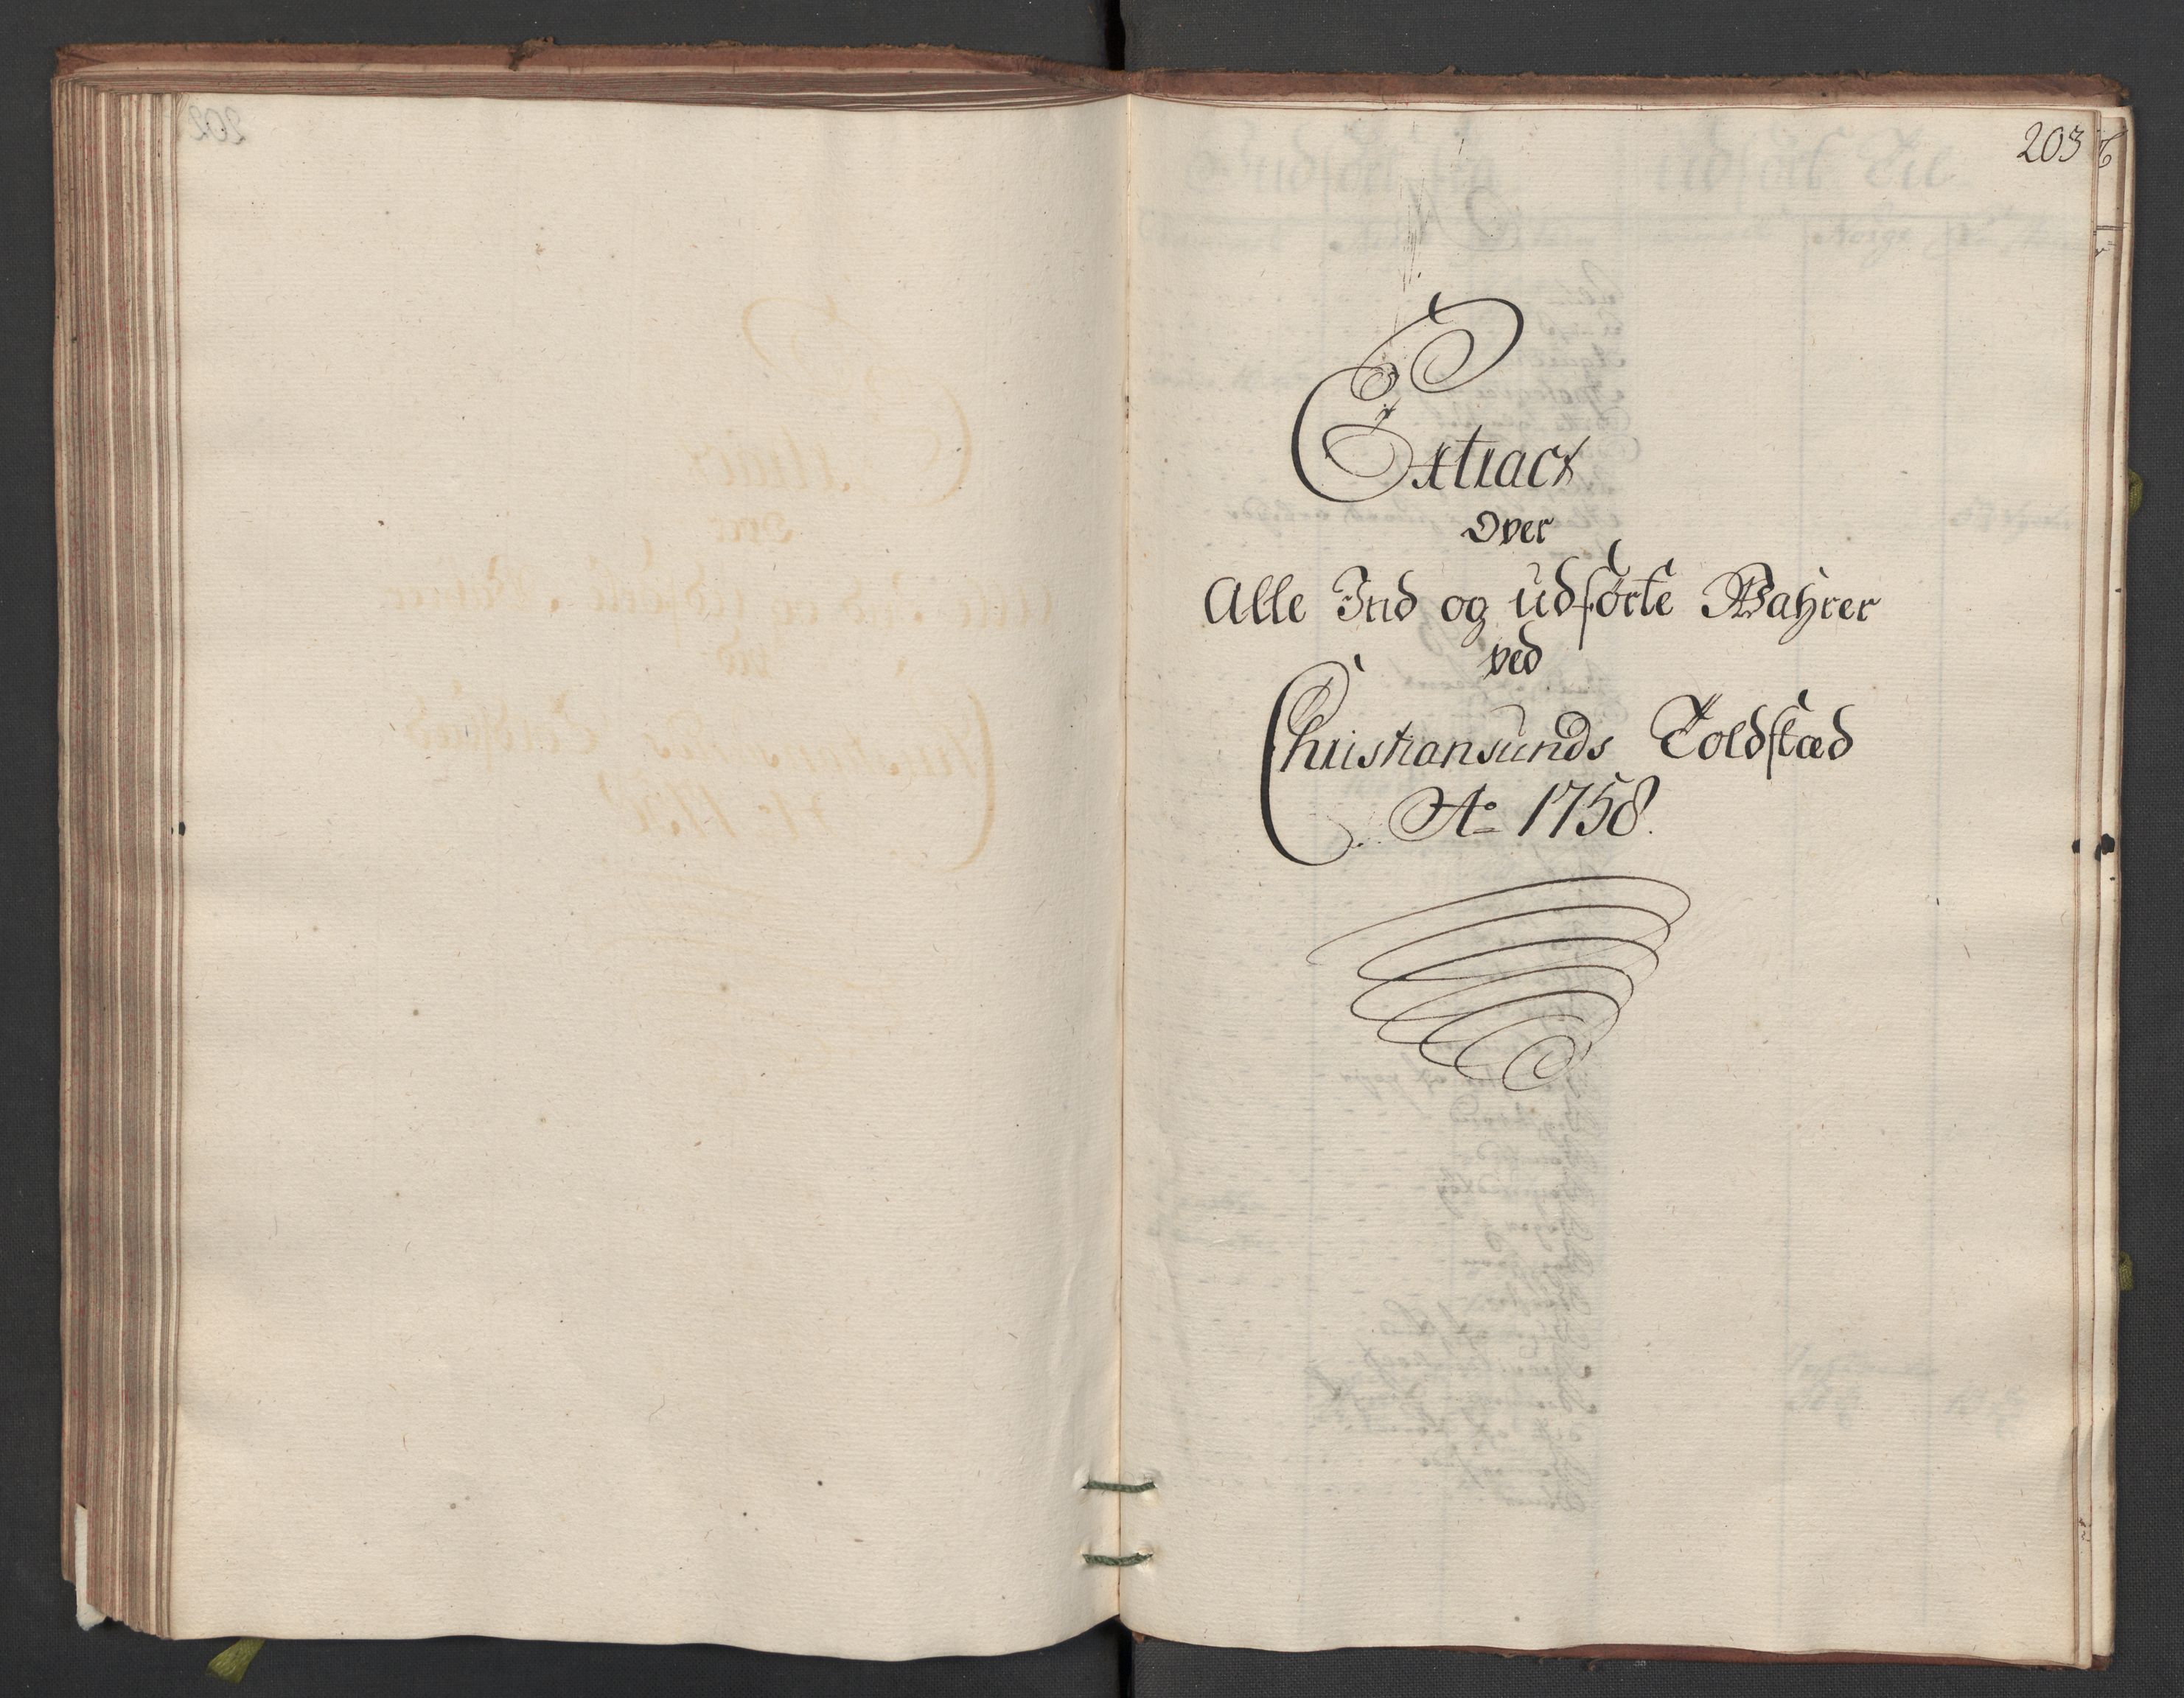 203
Extract
Over
Alle Ind og udførte Wahrer
ved
Christiansunds Toldstæd
Ao 1758.